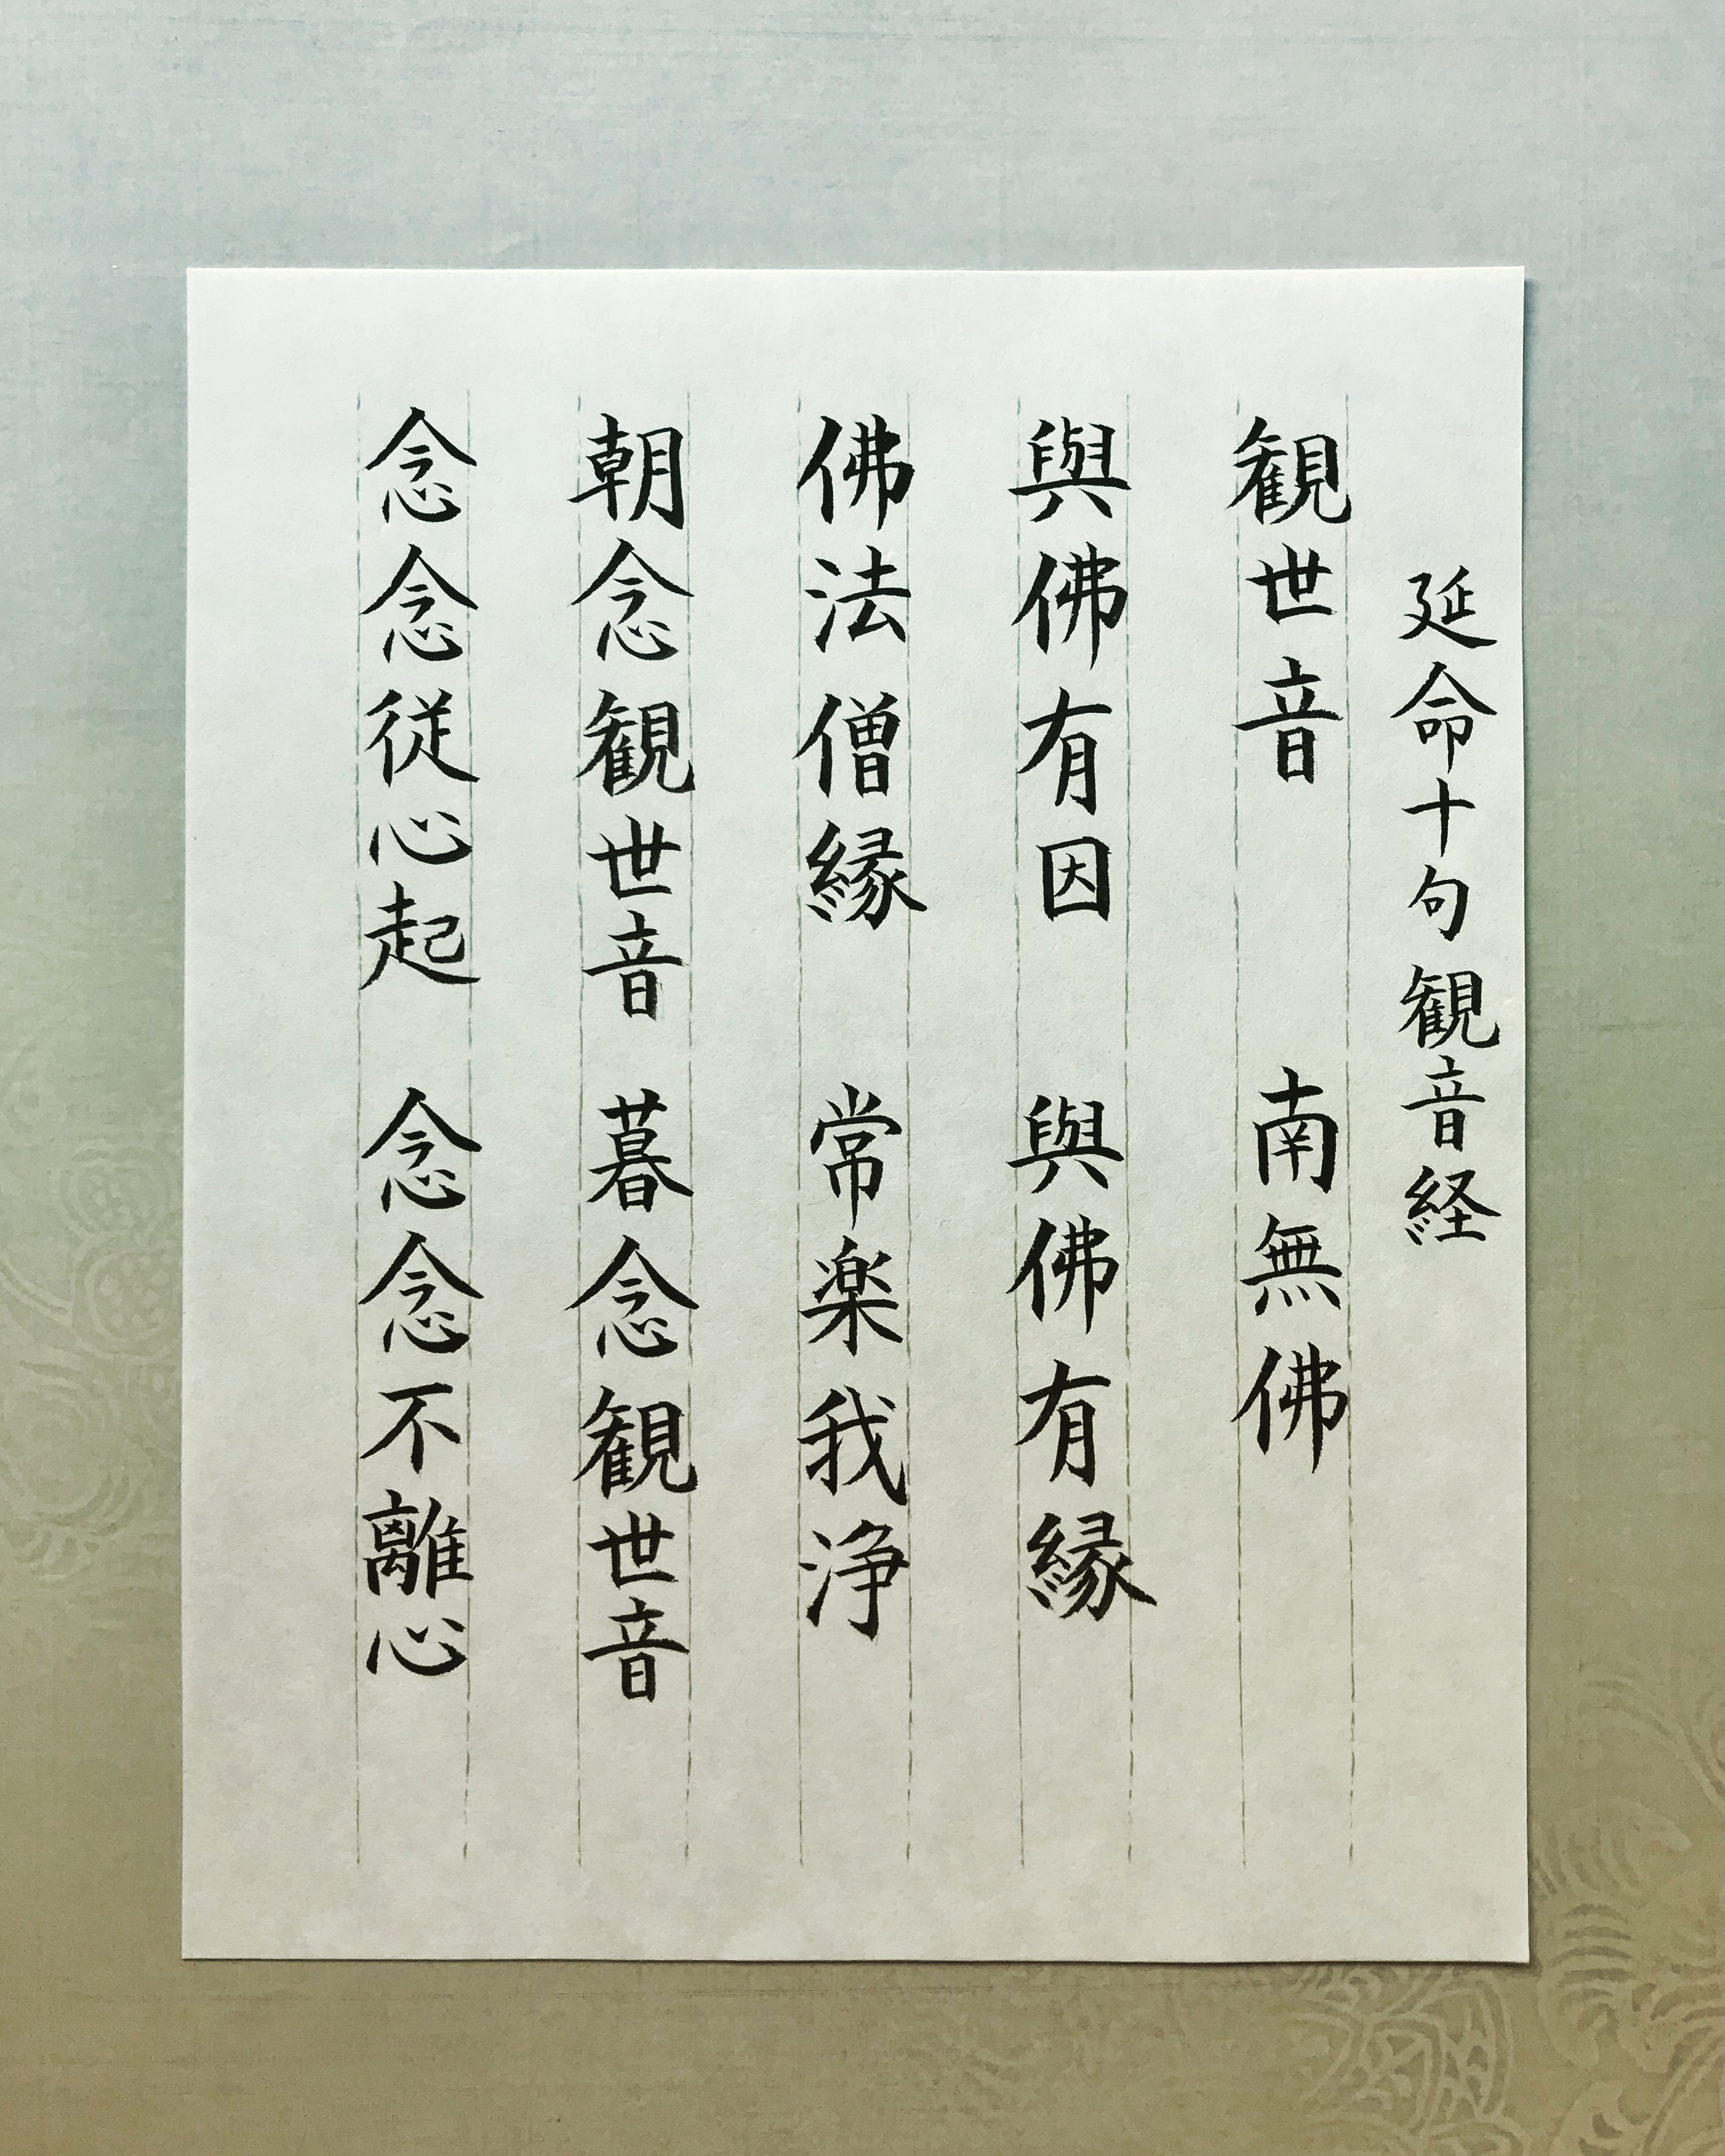 延命十句観音経
観世音　南無佛
與佛有因　與佛有縁
佛法僧縁　常楽我浄
朝念観世音　暮念観世音
念念従心起　念念不離心